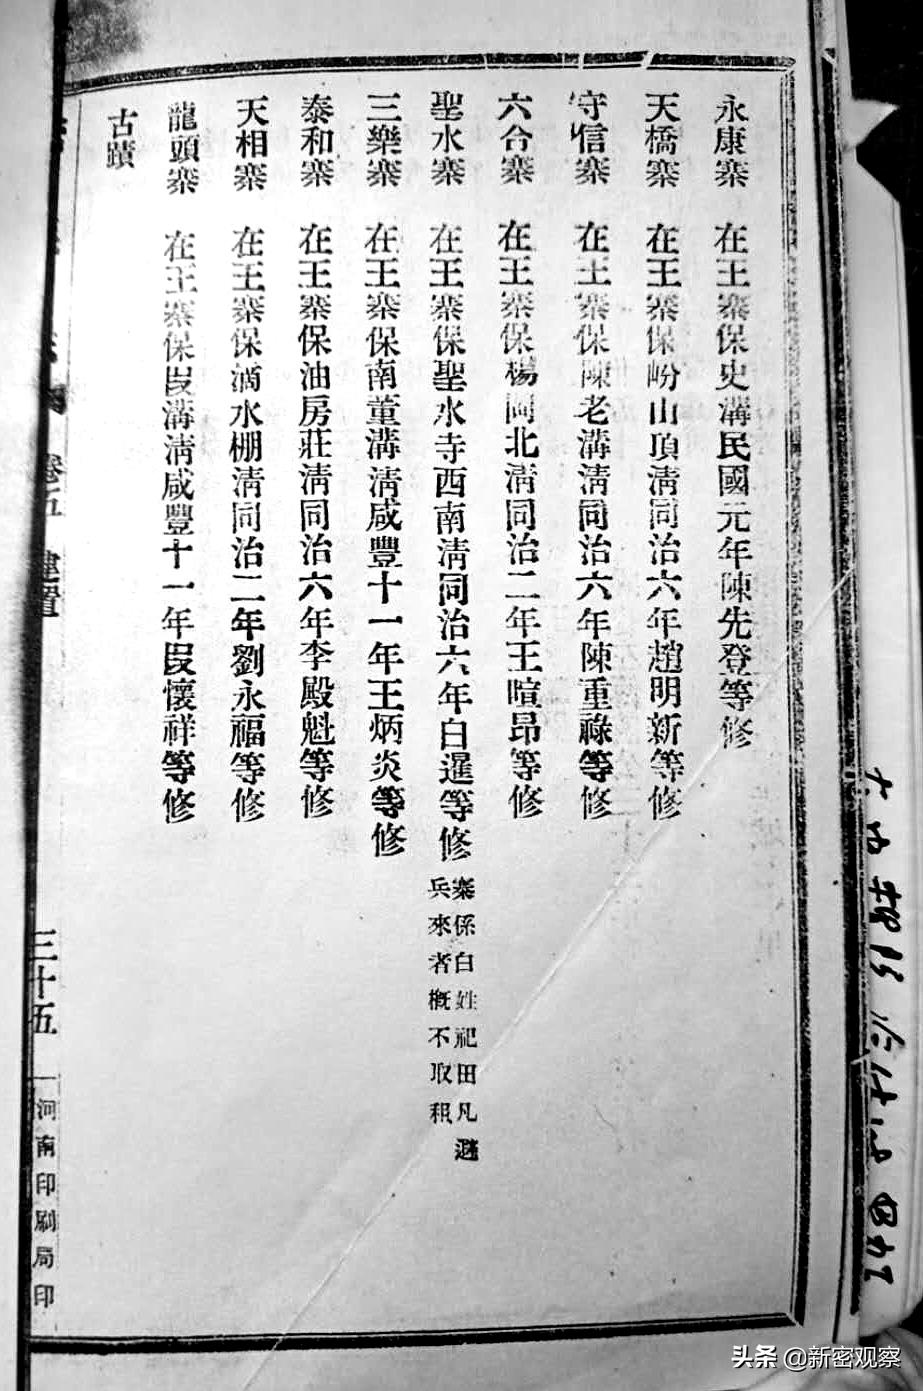 永康寨 在王寨保史溝民國元年陳先登等修
天橋寨 在王寨保岎山頂清同治六年趙明新等修
守信寨 在王寨保陳老溝清同治六年陳重祿等修
六合寨 在王寨保楊岡北清同治二年王暄昂等修
聖水寨 在王寨保聖水寺西南清同治六年白暹等修 寨係白姓祀田凡避
兵來者槪不取租
三樂寨 在王寨保南董溝清咸豐十一年王炳炎等修
泰和寨 在王寨保油房莊清同治六年李殿魁等修
天相寨 在王寨保滴水棚清同治二年劉永福等修
龍頭寨 在王寨保岌溝清咸豐十一年岌懷祥等修
古蹟
卷五 建置
三十五
河南印刷局印
头条 @新密观察